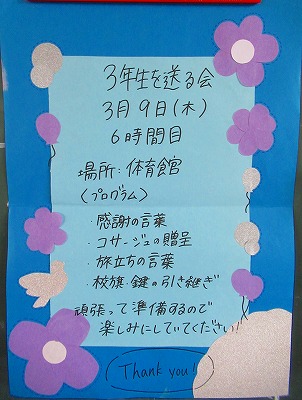 3年生を送る会
3月9日(木)
6時間目
場所:体育館
〈プログラム〉
・感謝の言葉
・コサージュの贈呈
・旅立ちの言葉
・校旗・鍵の引き継ぎ
頑張って準備するので
楽しみにしていてください!
Thank you!